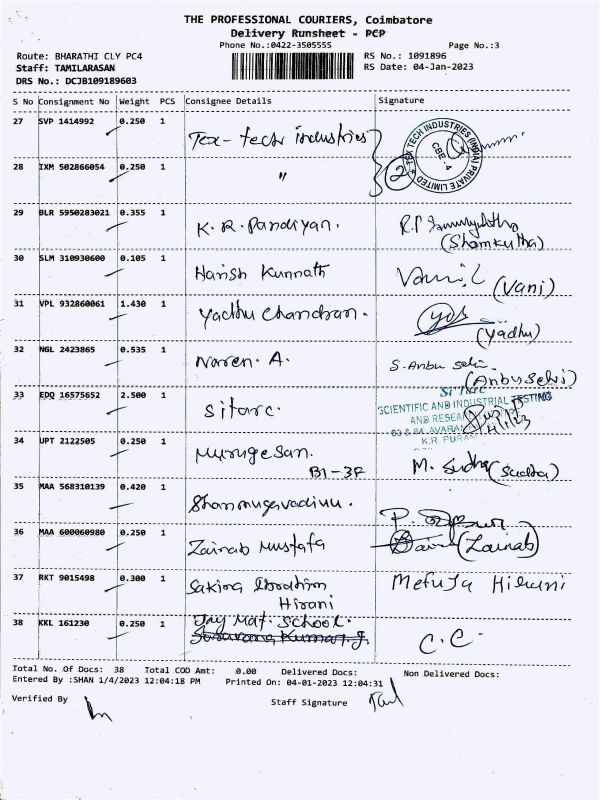 THE PROFESSIONAL COURIERS, Coimbatore
Delivery Runsheet - PCP
Phone No.:0422-3505555 Page No.:3
Route: BHARATHI CLY PC4 RS No.: 1091896
Staff: TAMILARASAN RS Date: 04-Jan-2023
DRS No.: DCJB109189603
S No Consignment No Weight PCS Consignee Details Signature
27 SVP 1414992 0.250 1 Tex-tech industries
TEX TECH INDUSTRIES (INDIA) PRIVATE LIMITED CBE-4
28 IXM 502866054 0.250 1 " 2
29 BLR 5950283021 0.355 1 K.R. Pandiyan.
30 SLM 310930600 0.105 1 Harish Kunnath (Vani)
31 VPL 932860061 1.430 1 Yadhu Chandran. (Yadhu)
32 NGL 2423865 0.535 1 Naren. A. S. Anbu Selvi (Anbu Selvi)
33 EDQ 16575652 2.500 1 Sitarc. Si'Tarc
SCIENTIFIC AND INDUSTRIAL TESTING
AND RESEARCH
K.R. PURAM
34 UPT 2122505 0.250 1 Murugesan. B1-3F M. Sudha (Sudha)
35 MAA 568310139 0.420 1 Shanmugavadivu.
36 MAA 600060980 0.250 1 Zainab Mustafa (Zainab)
37 RKT 9015498 0.300 1 Sakina Ibrahim
Hirani
38 KKL 161230 0.250 1 Jay Mat. School. C.C.
Saravana Kumar.J.
Total No. Of Docs: 38 Total COD Amt: 0.00 Delivered Docs: Non Delivered Docs:
Entered By :SHAN 1/4/2023 12:04:18 PM Printed On: 04-01-2023 12:04:31
Verified By Staff Signature